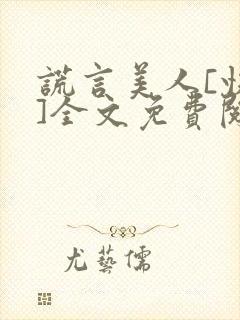 謊言美人[快
]全文免費閱
尤藝儒